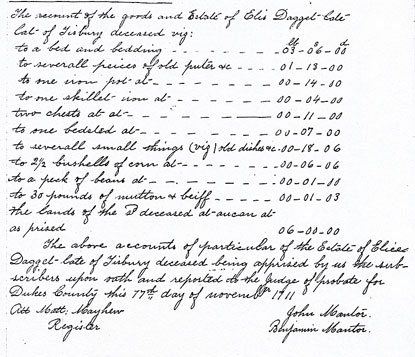 The account of the goods and Estate of Elis Dagget late
Lat of Tisbury deceased viz:
to a bed and bedding - - - - - - 03-06-00
to severall peices of old puter &c - - - - 01-13-00
to one iron pot at - - - - - - - 00-14-00
to one skillet iron at - - - - - - 00-04-00
two chests at at - - - - - - - 00-11-00
to one bedsted at - - - - - - - 00-07-00
to severall small things (viz) old dishes &c. 00-18-06
to 2 1/2 bushells of corn at - - - - - 00-06-06
to a peck of beans at - - - - - - - 00-01-00
to 30 pounds of mutton & beiff - - - - 00-01-03
the lands of the sd deceased at aucan at
as prised 06-00-00
The above accounts of particular of the Estate of Elices
Dagget late of Tisbury deceased being apprised by us the sub-
scribers upon oath and reported to the Judge of Probate for
Dukes County this 17th day of novembr 1711
Att Matt. Mayhew
Register
John Mantor.
Benjamin Mantor.